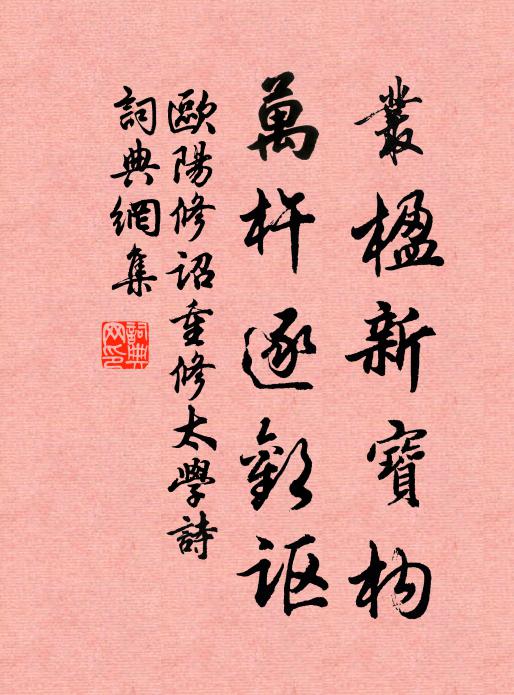 叢楹新寶构
萬杵逐歡謳
歐陽修詔重修太學詩
詞典網集
詞典网印